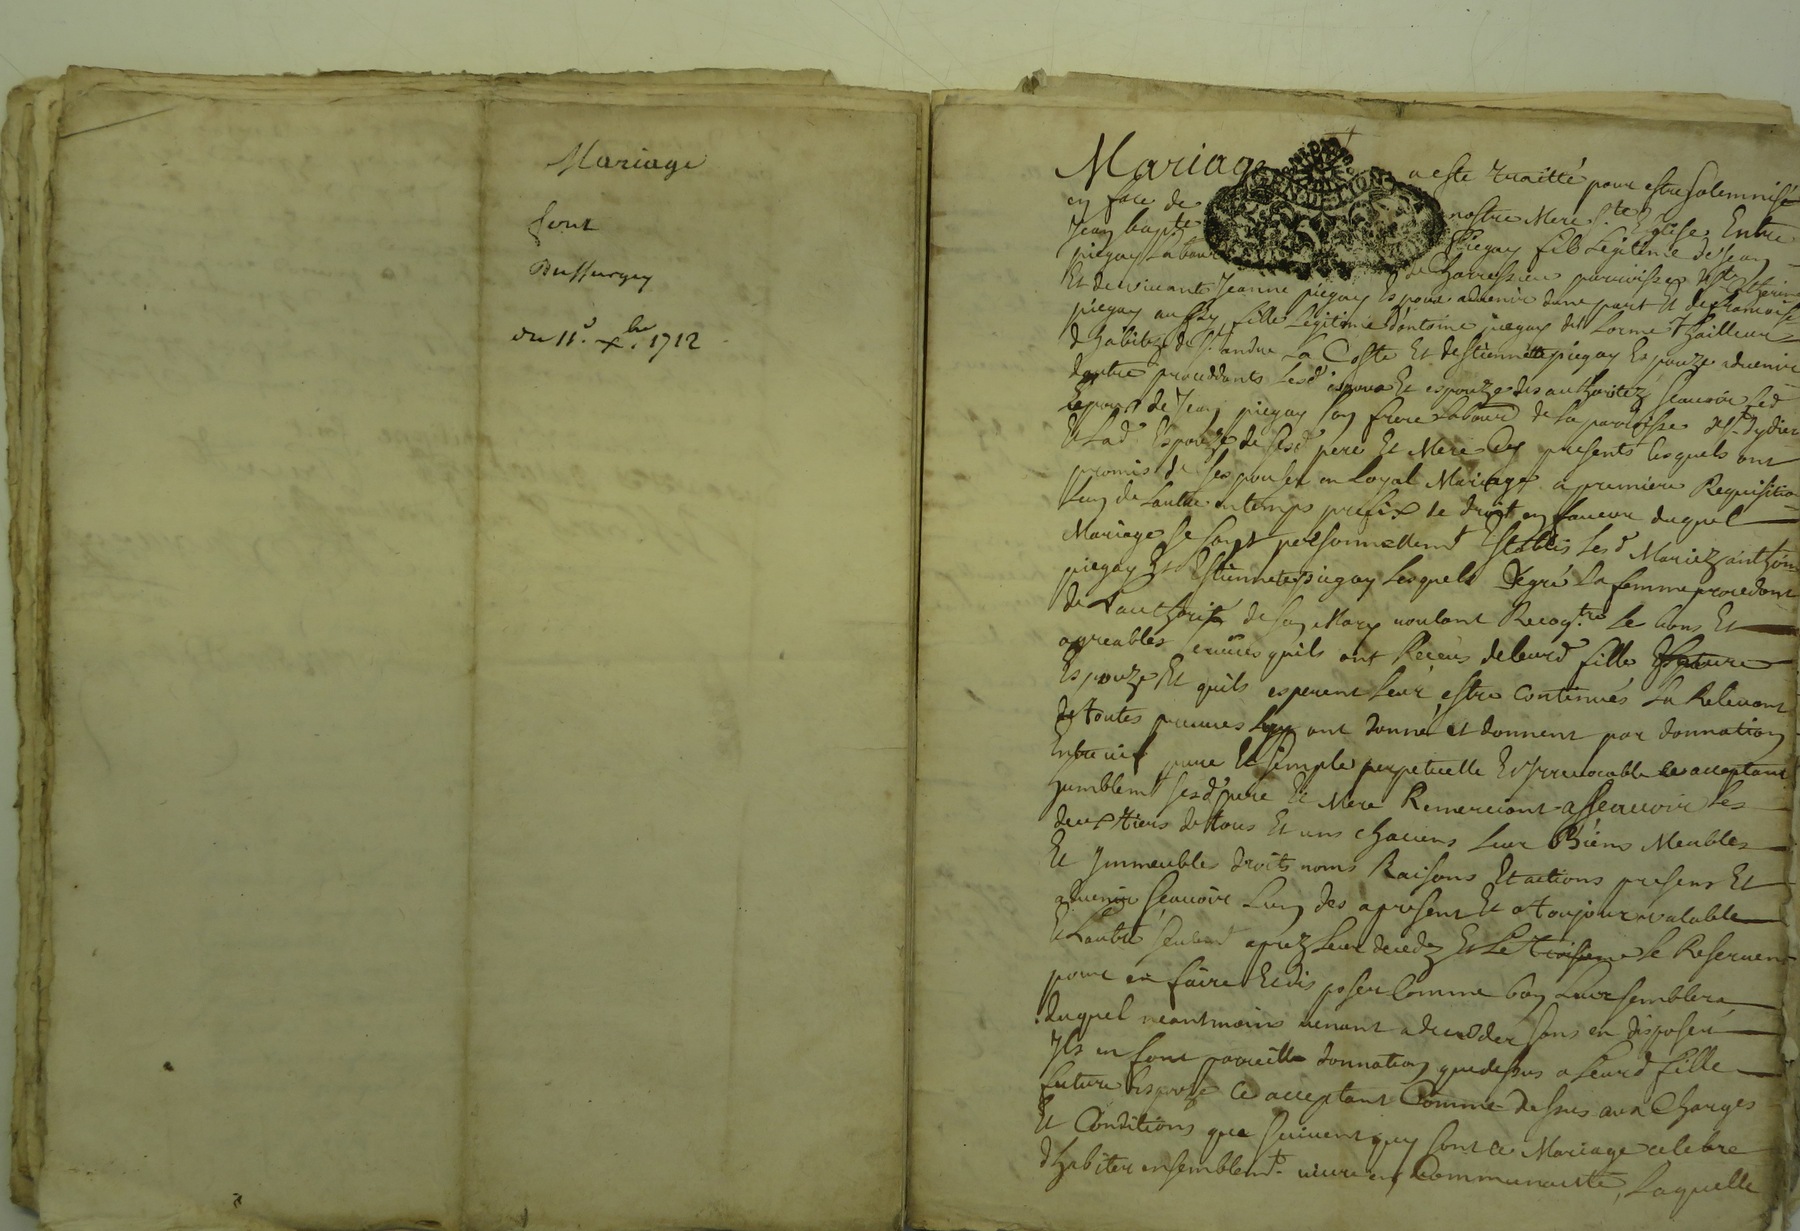 Mariage
font
Dussurgey
du 11e. xbre. 1712
Mariage a este traitté pour estre solemnisé
en face de nostre Mere Ste Eglise Entre
Jean bapte Piegay fils legitime de Jean
piegay Labour de paroisse st
Et de vivante Jeanne piegay Espoux advenir dune part Et
piegay fille Legitime d'antoine piegay dit Lorme
d habitez de St andre La Coste Et destiennette piegay Espouze advenir
dautre proceddants Lesd espoux Et espouze des authoritez scauoir Led
Espoux de Jean piegay son frere Labour de la paroisse de St dydier
Et Lad Espouze de sesd pere Et Mere Cy presents lesquels ont
promis de sespouser en Loyal Mariage a premiere Requisition
Lun de Lautre en temps prefix de droit en faueur duquel
Mariage se sont personnellemt Establis Lesd Mariez anthoine
piegay Et Estiennette piegay Lesquels Degré La femme procedant
de L'authorité de son Mary voulant Recogtre Le bons Et
agreables seruices quils ont Receus de leurd fille future
Espouze Et quils esperent Leur estre continués La Releuant
de toutes preuues Luy ont donné et donnent par donnation
Entre uifs pure Et simple perpetuelle Et Irreuocable ce acceptant
humblemt sesd pere Et Mere Remerciant assauoir Les
deux tiers de tous Et uns chacuns Leur Biens Meubles
Et Immeubles droits noms Raisons Et actions presens Et
aduenir scauoir Lun des apresent Et a toujour valable
Et Lautre seulemt aprez Leur decedz Et Le troisieme se Reseruent
pour en faire Et disposer Comme bon Leur semblera
duquel neantmoins venant a deceder sans en disposer
Ils en font pareille donnation que dessus a Leurd fille
future Espouse ce acceptant Comme dessus aux Charges
Et Conditions que suiuent quy sont ce Mariage celebré
d'habiter ensemblemt viure en Communauté, Laquelle